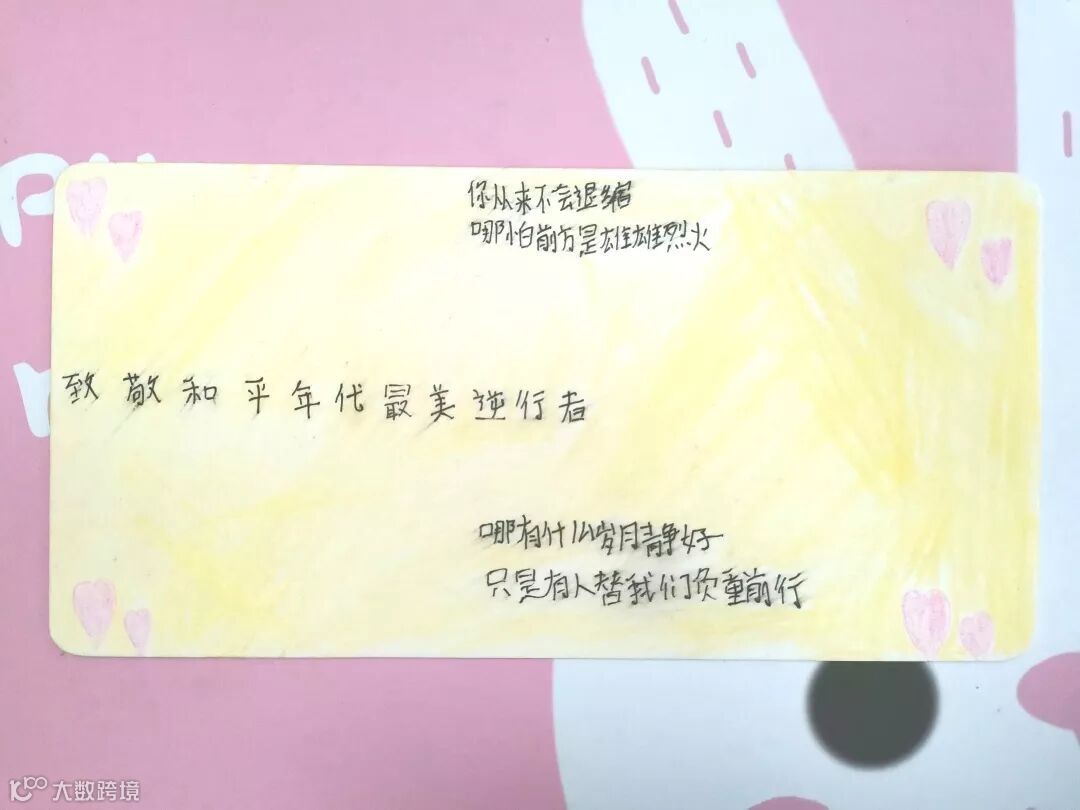 你从来不会退缩
哪怕前方是雄雄烈火
致敬和平年代最美逆行者
哪有什么岁月静好
只是有人替我们负重前行
大数跨境